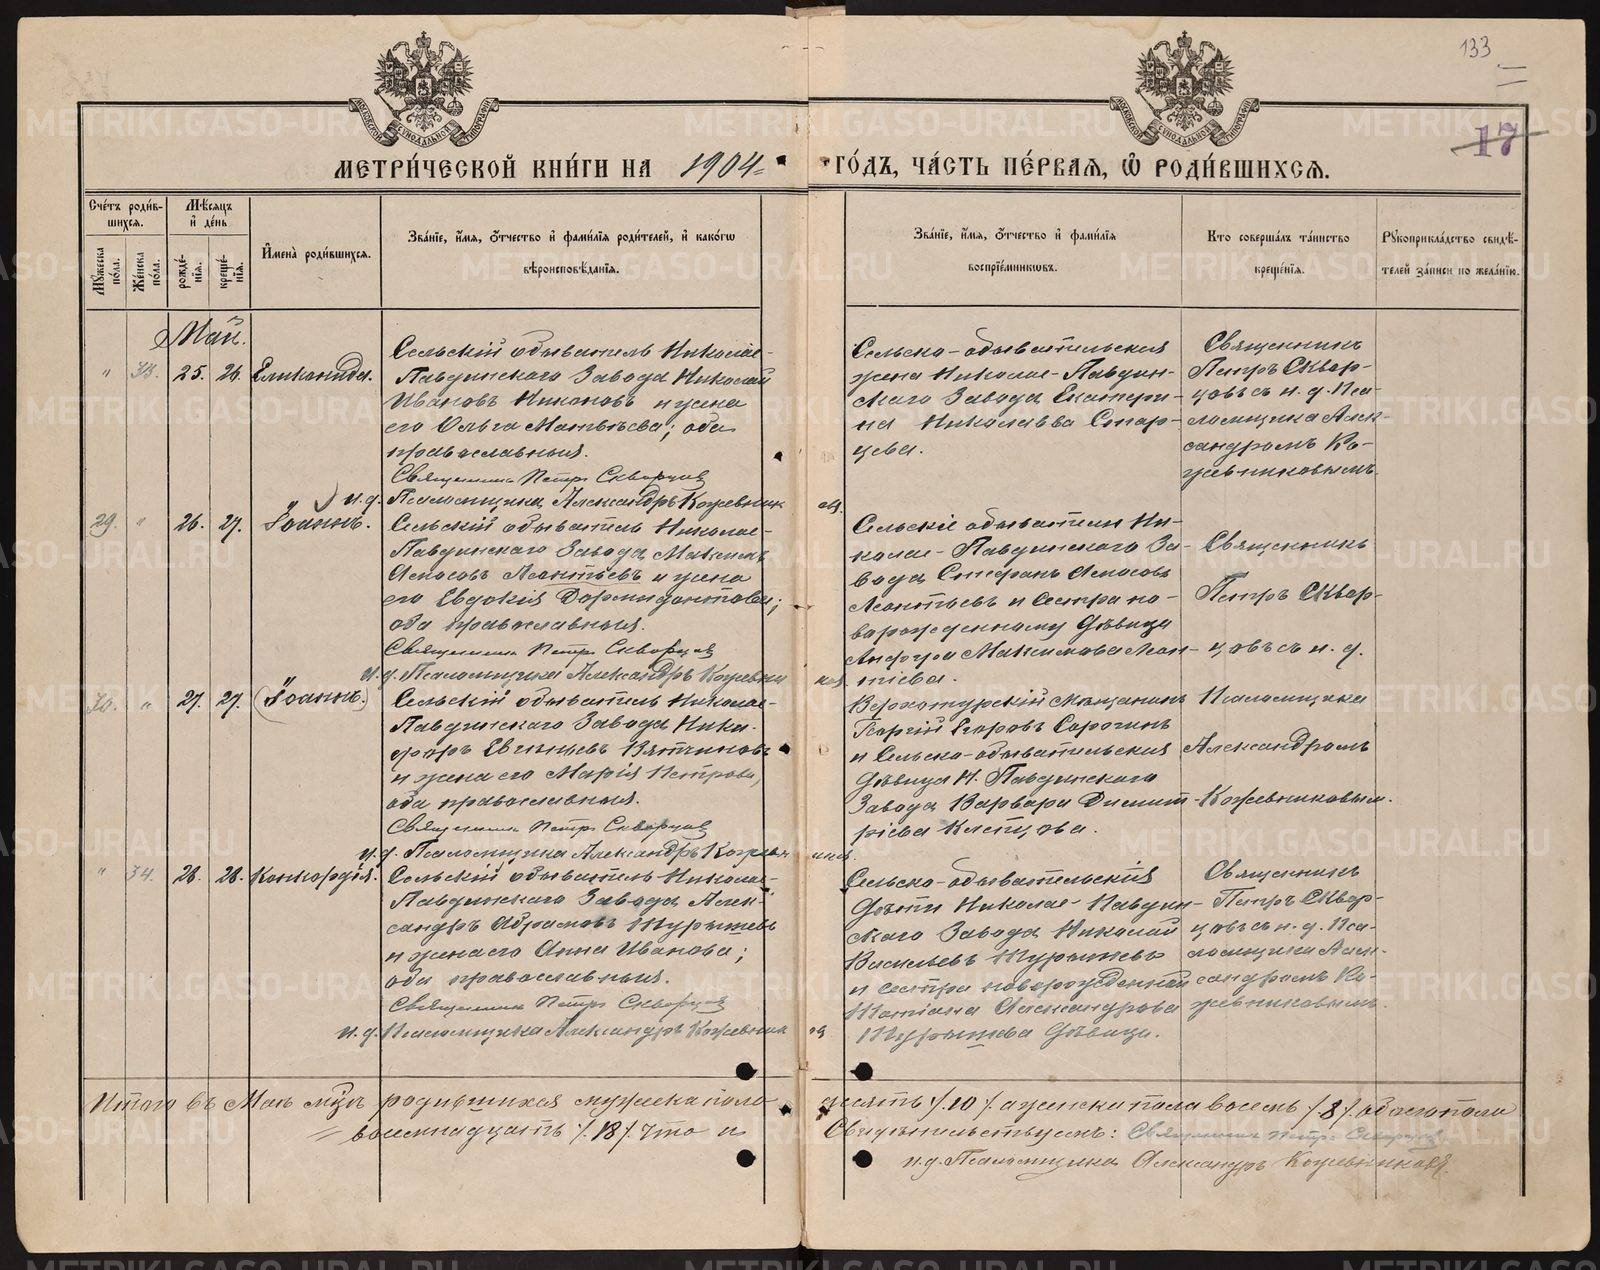 133
17
МЕТРИ́ЧЕСКОЙ КНИ́ГИ НА 1904 ГО́ДЪ, ЧА́СТЬ ПЕ́РВАЯ, Ѿ РОДИ́ВШИХСЯ.
Сче́тъ роди́в-
шихся.
Мꙋжеска по́ла.
Же́нска по́ла.
Мѣ́сяцъ
и҆ де́нь
рожде́-
нїя.
креще́-
нїя.
И҆мена̀ роди́вшихся.
Зва́нїе, и҆́мя, ѻ҆́тчество и҆ фами́лїя роди́телей, и҆ како́гѡ
вѣроисповѣ́данїя.
Зва́нїе, и҆́мя, ѻ҆́тчество и҆ фами́лїя
воспрїе́мникѡвъ.
Кто соверша́лъ та́инство
креще́нїя.
Рꙋкоприкла́дство свидѣ́-
телей за́писи по жела́нїю.
Май.
" 33. 25. 26. Еликонида.
Сельскій обыватель Николае-
Павдинскаго Завода Николай
Ивановъ Никоновъ и жена
его Ольга Матвѣева; оба
православныя.
Священникъ Петръ Скворцовъ
и. д. Псаломщика Александръ Кожевниковъ.
Сельско-обывательская
жена Николае-Павдин-
скаго Завода Екатери-
на Николаева Стар-
цева.
Священникъ
Петръ Сквор-
цовъ съ и. д. Пса-
ломщика Алек-
сандромъ Ко-
жевниковымъ.
29. " 26. 27. Іоаннъ.
Сельскій обыватель Николае-
Павдинскаго Завода Максимъ
Леонтьевъ и жена
его Евдокія Дормидонтова;
оба православныя.
Священникъ Петръ Скворцовъ
и. д. Псаломщика Александръ Кожевниковъ.
Сельскіе обыватели Ни-
колае-Павдинскаго За-
вода Стефанъ
Леонтьевъ и сестра но-
ворожденному дѣвица
Максимова Леон-
тіева.
Священникъ
Петръ Сквор-
цовъ съ и. д.
Псаломщика
Александромъ
Кожевниковым.
30. " 27. 27. (Іоаннъ.)
Сельскій обыватель Николае-
Павдинскаго Завода Ники-
форъ Евгеньевъ Вятчиновъ
и жена его Марія Петрова,
оба православныя.
Священникъ Петръ Скворцовъ
и. д. Псаломщика Александръ Кожевниковъ.
Верхотурскій Мѣщанинъ
Георгій Егоровъ Сорогинъ
и Сельско-обывательская
дѣвица Н. Павдинскаго
Завода Варвара Димит-
ріева Клепцова.
" 34. 28. 28. Конкордія.
Сельскій обыватель Николае-
Павдинскаго Завода Алек-
сандръ Абрамовъ Турышевъ
и жена его Анна Иванова;
оба православныя.
Священникъ Петръ Скворцовъ
и. д. Псаломщика Александръ Кожевниковъ
Сельско-обывательскія
дѣти Николае-Павдин-
скаго Завода Николай
Васильевъ Турышевъ
и сестра новорожденной
Татіана Александрова
Турышева дѣвица.
Священникъ
Петръ Сквор-
цовъ съ и. д. Пса-
ломщика Алек-
сандромъ Ко-
жевниковымъ.
Итого въ Маѣ мцѣ родившихся мужеска пола десять /.10/. а женска пола восемь /.8/. обоего пола
восемнадцать /.18/. Что и Свидѣтельствуемъ: Священникъ Петръ Скворцовъ
и. д. Псаломщика Александръ Кожевниковъ.
METRIKI.GASO-URAL.RU